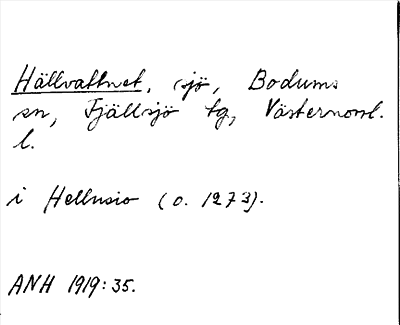 Hällvattnet, sjö, Bodums
sn, Fjällsjö tg, Västernorrl.
l.
i Hellusio (o. 1273).
ANH 1919:35.